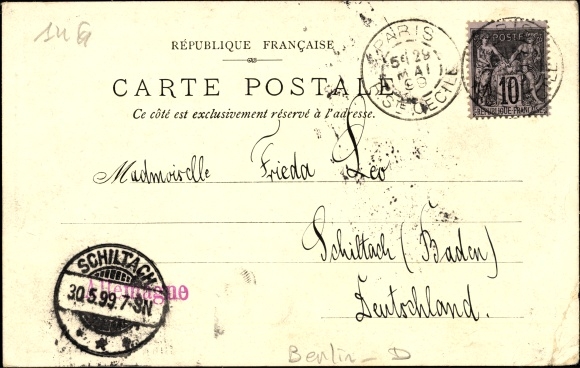 RÉPUBLIQUE FRANÇAISE
CARTE POSTALE
Ce côté est exclusivement réservé à l'adresse.
PARIS
5E 29
MAI
99
RÉPUBLIQUE FRANÇAISE
POSTE
10
Madmoiselle Frieda Leo
Schiltach (Baden)
Deutschland.
Allemagne
SCHILTACH
30.5.99.7-8N.
Berlin - D